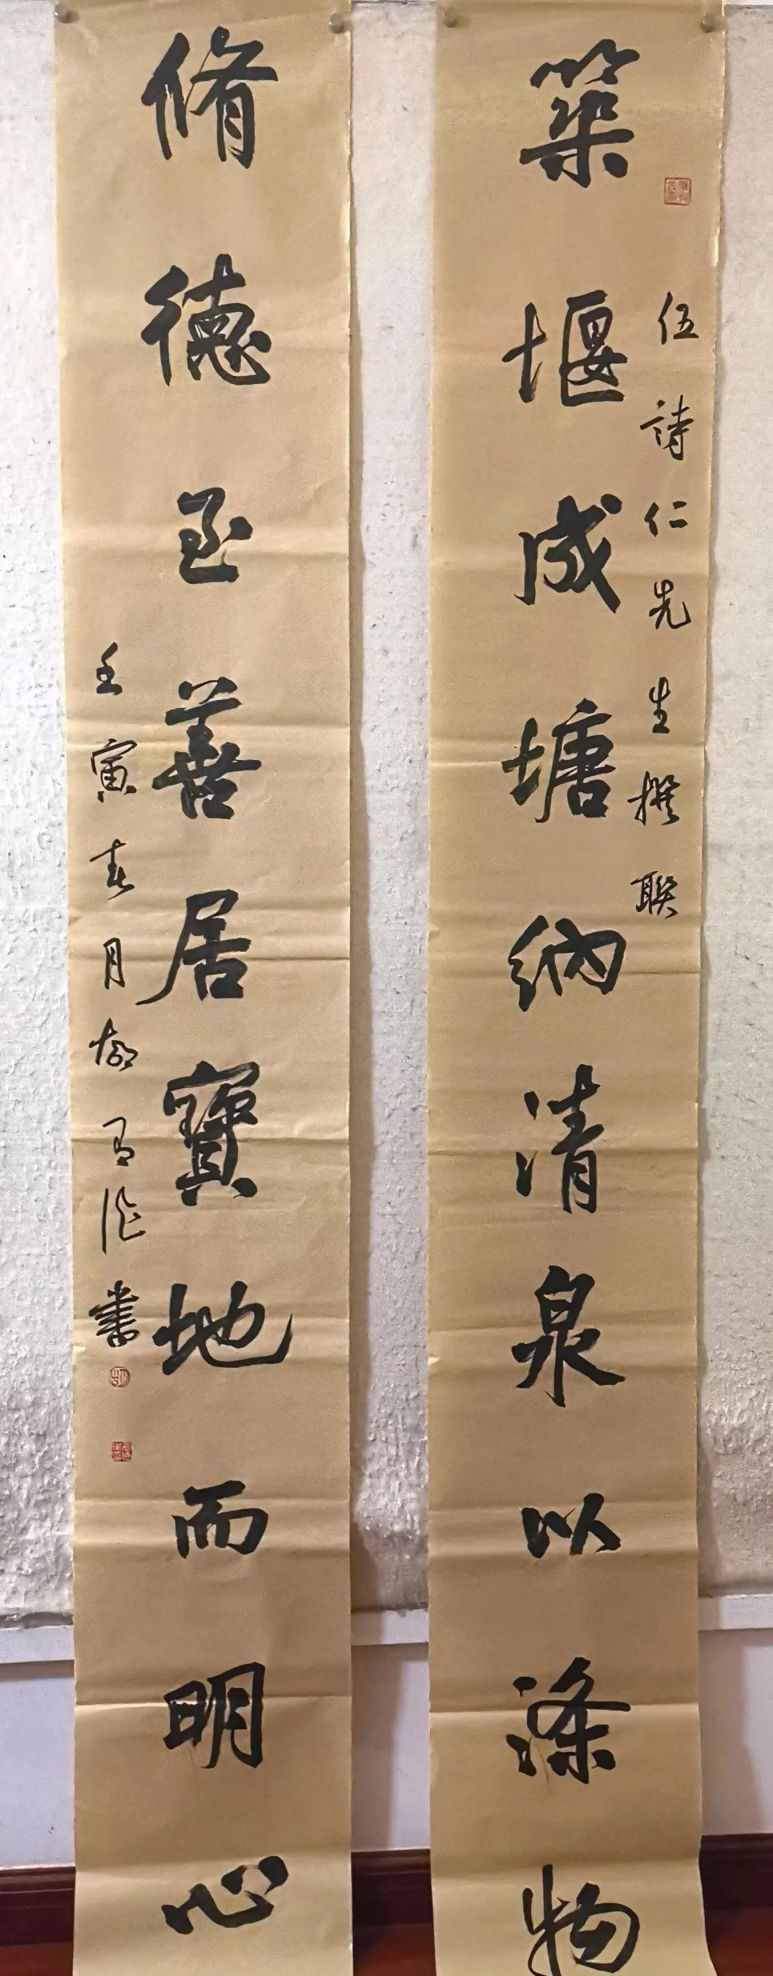 築堰成塘納清泉以滌物
伍詩仁先生撰联
脩德至善居寶地而明心
壬寅春月 書